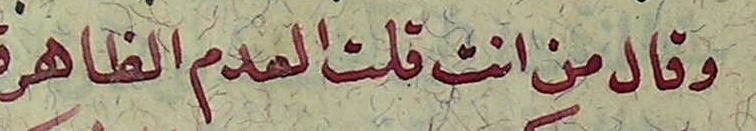 وقال من انت قلت العدم الظاهرة